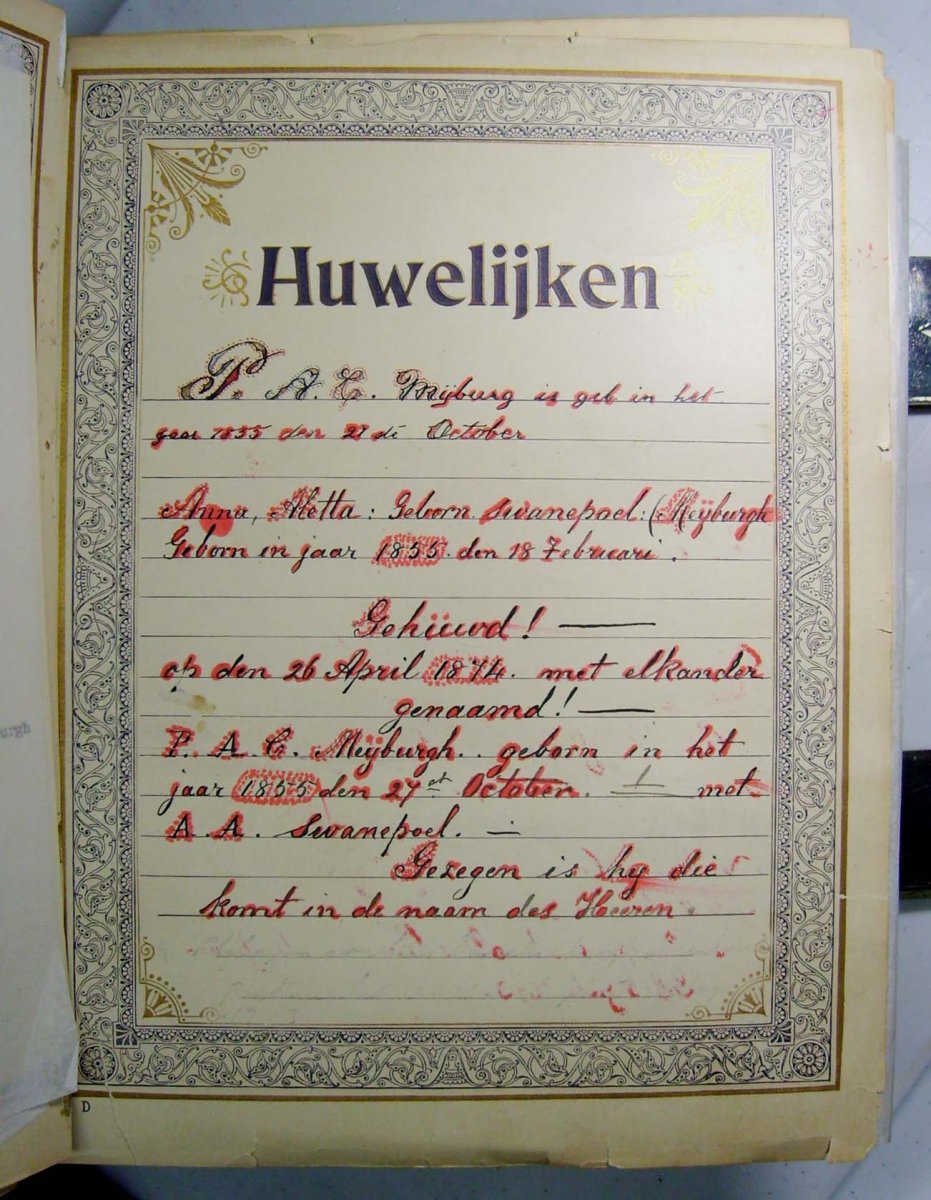 Huwelijken
P. A. C. Mijburg is geb in het
jaar 1855 den 27 de October
Anna, Aletta: Geborn Swanepoel: (Meijburgh
Geborn in jaar 1855 den 18 Februari.
Gehüwd! —
op den 26 April 1874. met elkander
genaamd! —
P. A. C. Meijburgh.. geborn in het
jaar 1855 den 27st October. — met
A. A. Swanepoel. —
Gezegen is hij die
komt in de naam des Heeren.
D